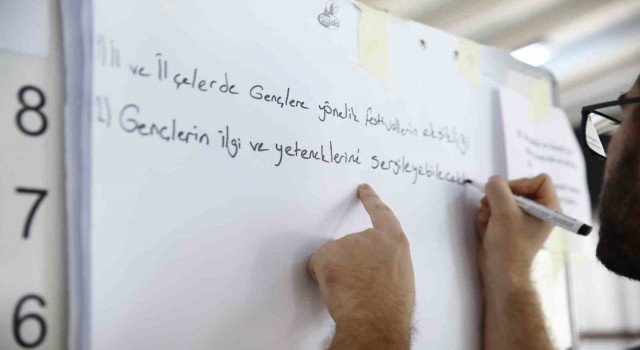 8
7
6
1) İl ve İlçelerde Gençlere yönelik festivallerin eksikliği
2) Gençlerin ilgi ve yeteneklerini sergileyebilecek